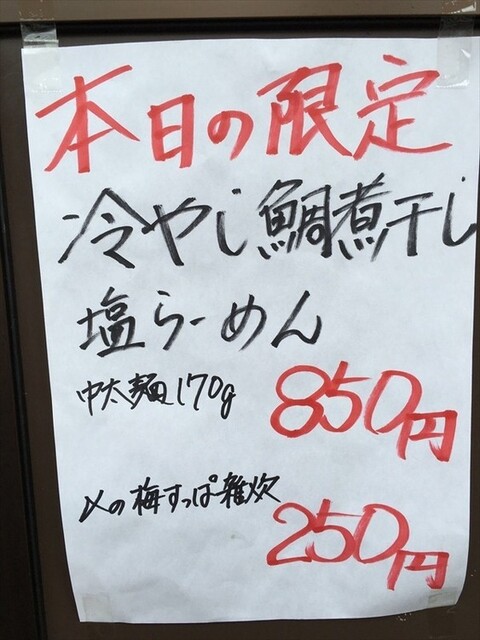 本日の限定
冷やし鯛煮干し
塩らーめん
中太麺170g 850円
〆の梅すっぱ雑炊 250円